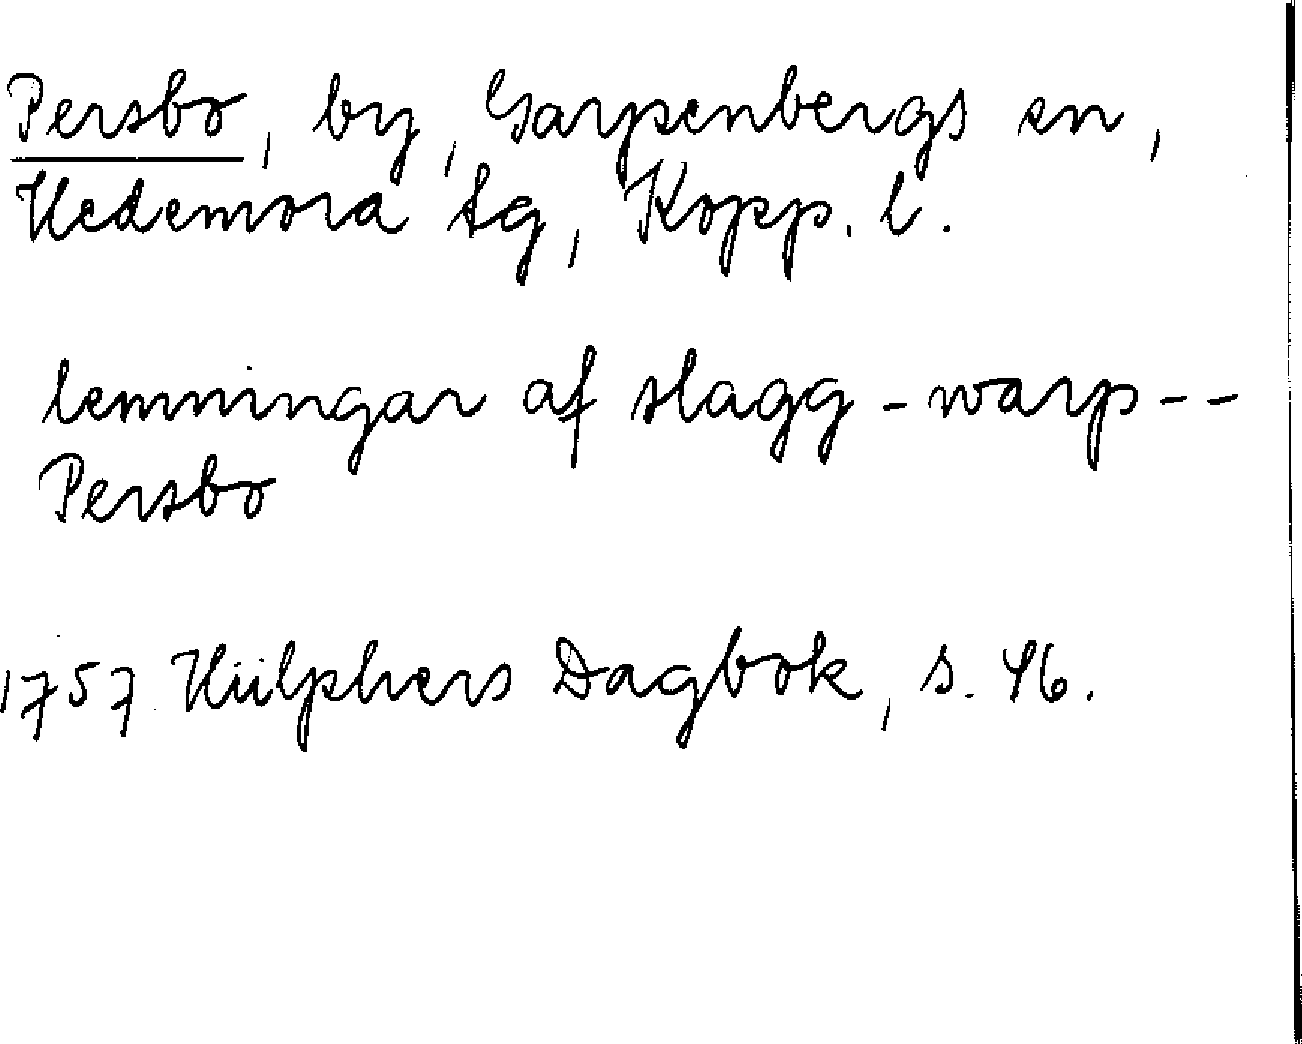 Persbo, by, Garpenbergs sn,
Hedemora tg, Kopp. l.
lemningar af slagg-warp--
Persbo
1757 Hülphers Dagbok, s. 46.